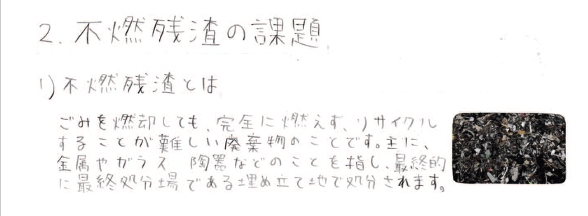 2. 不燃残渣の課題
1) 不燃残渣とは
ごみを燃却しても、完全に燃えず、リサイクル
することが難しい廃棄物のことです。主に、
金属やガラス 陶器などのことを指し、最終的
に最終処分場である埋め立て地で処分されます。